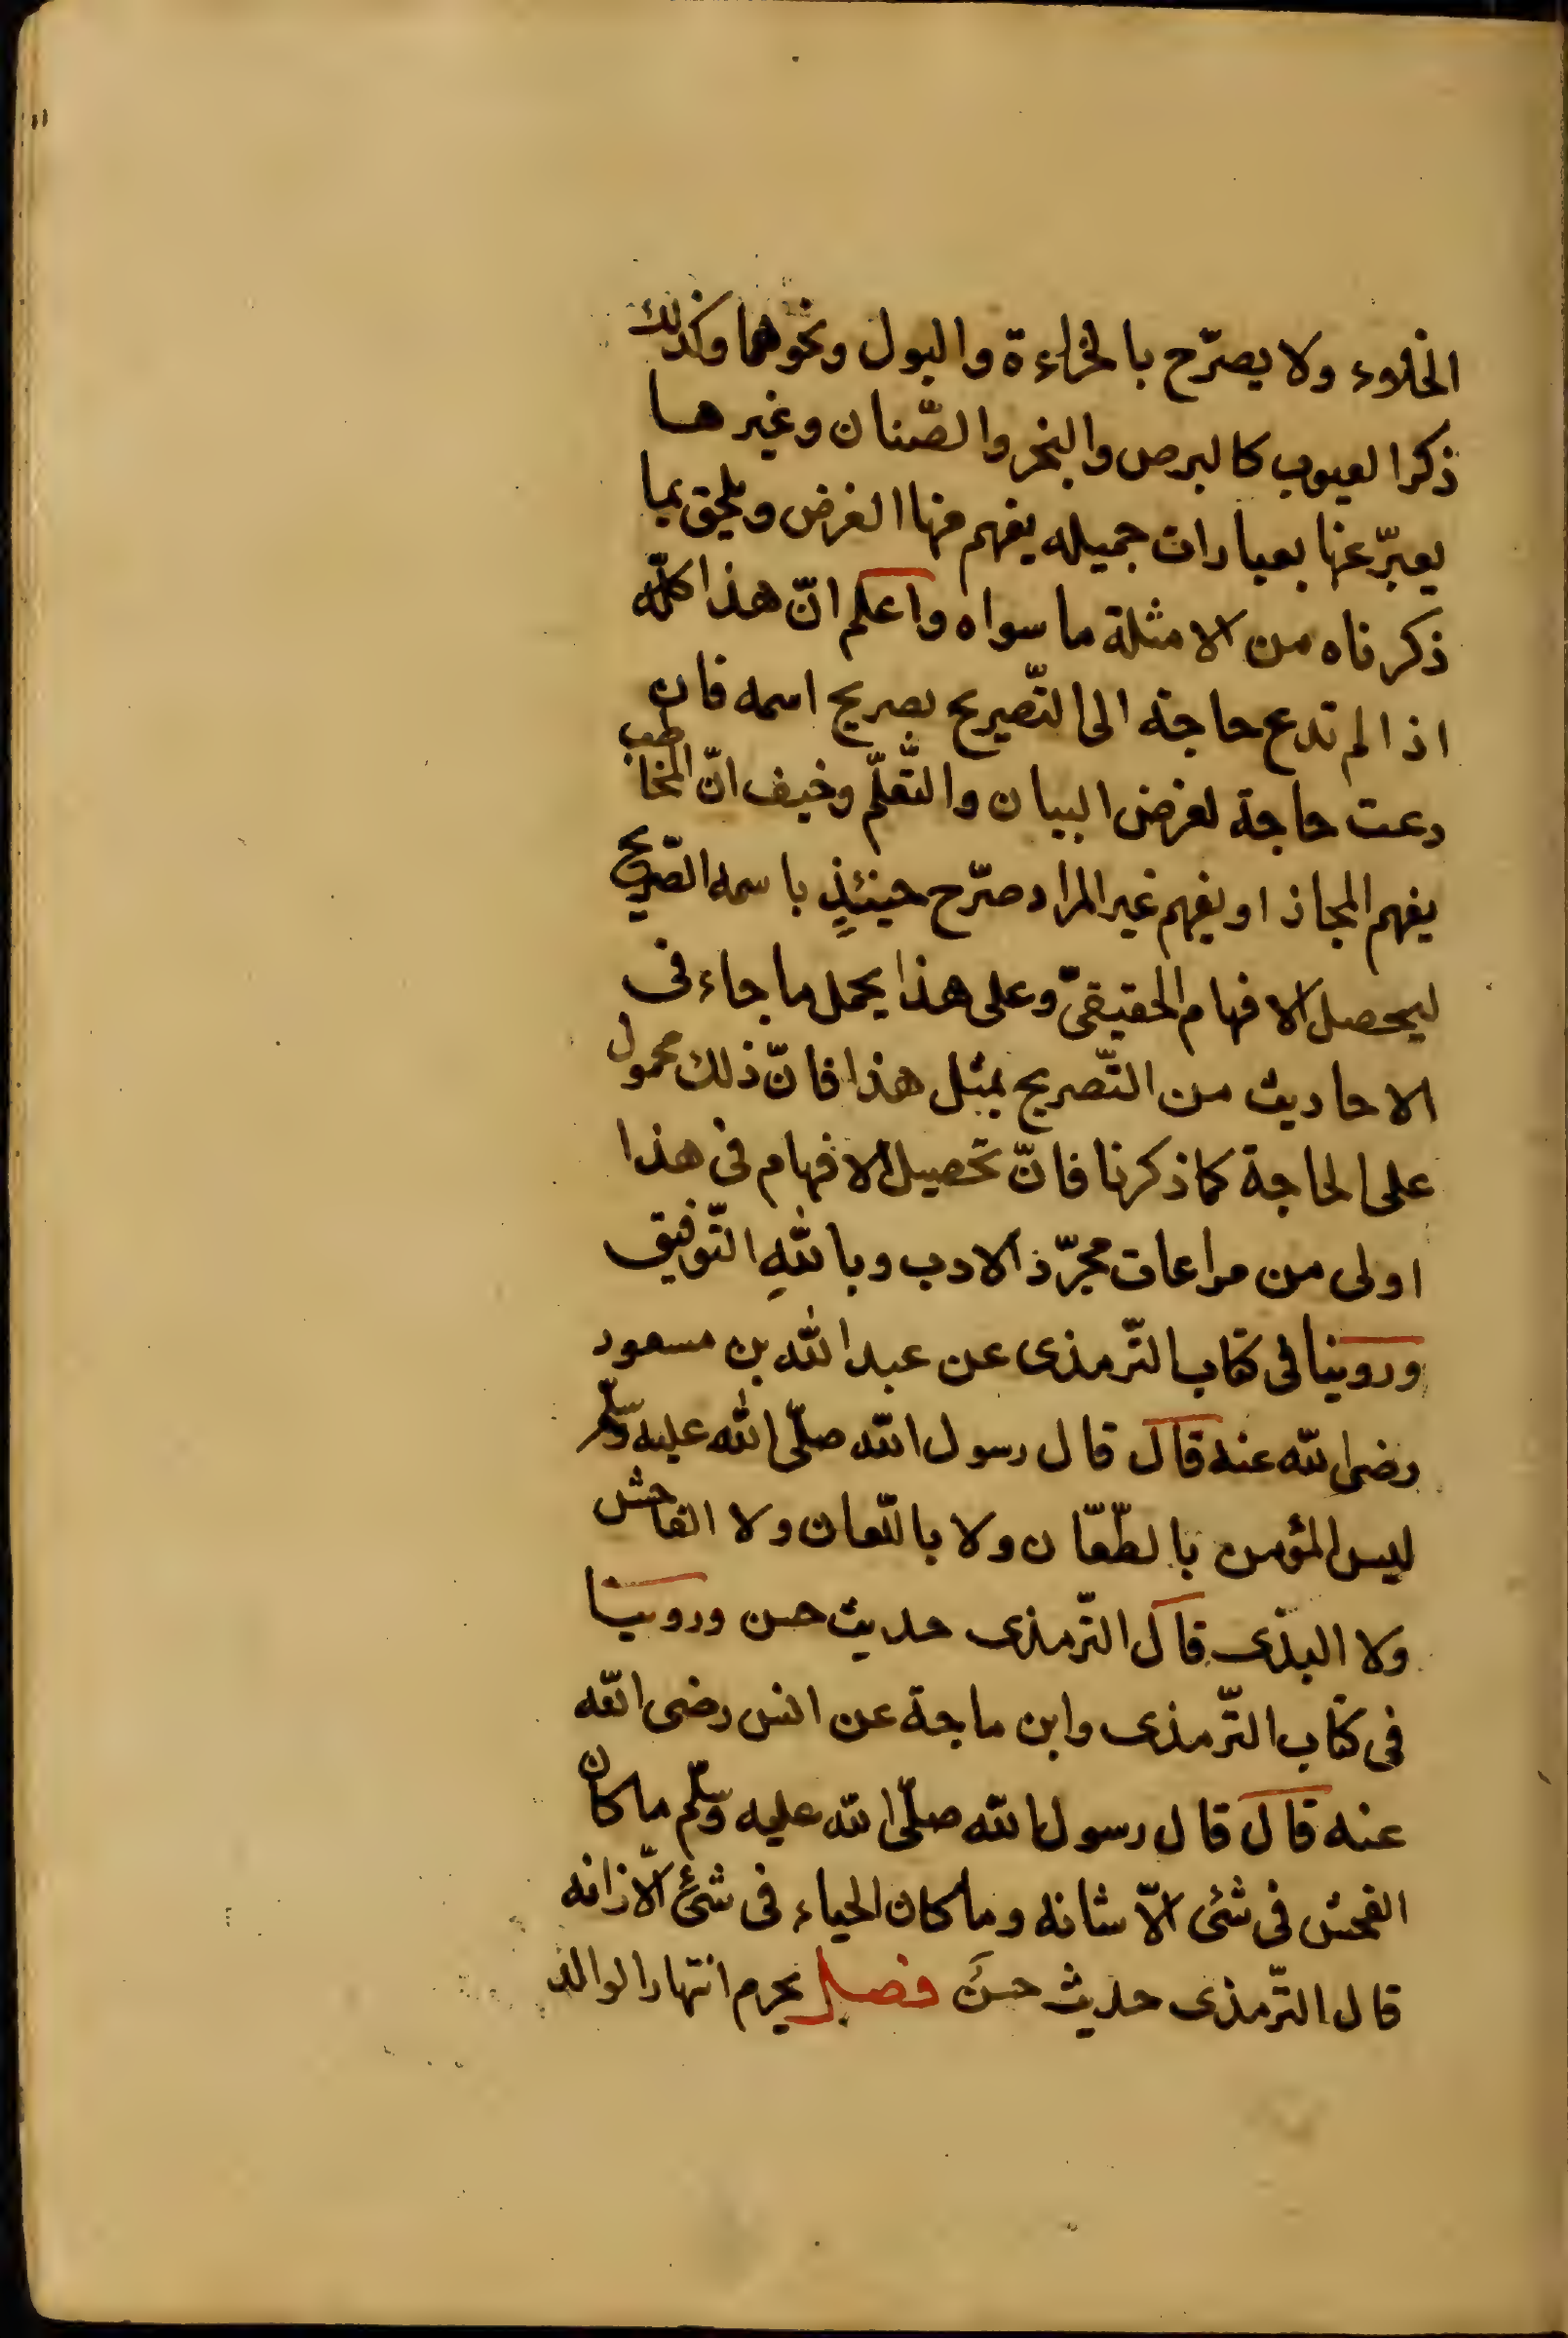 الخلاوء ولا يصرّح بالخراءة والبول ونحوهما وكذلك
ذكر العيوب كالبرص والبخر والصّنان وغيرها
يعبّر عنها بعبارات جميله يفهم منها الغرض ويلحق بما
ذكرناه من الامثلة ما سواه واعلم انّ هذا كلّه
اذا لم تدع حاجة الى التّصريح بصريح اسمه فان
دعت حاجة لغرض البيان والتّعلّم وخيف انّ المخاطب
يفهم المجاز او يفهم غير المراد صرّح حينئذٍ باسمه الصّريح
ليحصل الافهام الحقيقىّ وعلى هذا يحمل ما جاء فى
الاحاديث من التّصريح بمثل هذا فانّ ذلك محمول
على الحاجة كما ذكرنا فانّ تحصيل الافهام فى هذا
اولى من مراعات مجرّد الادب وبالله التّوفيق
وروينا فى كتاب التّرمذى عن عبد الله بن مسعود
رضى الله عنه قال قال رسول الله صلّى الله عليه وسلّم
ليس المؤمن بالطّعّان ولا باللّعان ولا الفاحش
ولا البذى قال التّرمذى حديث حسن وروينا
فى كتاب التّرمذى وابن ماجة عن انس رضى الله
عنه قال قال رسول الله صلّى الله عليه وسلّم ما كان
الفحش فى شئ الّا شانه وما كان الحياء فى شئ الّا زانه
قال التّرمذى حديث حسن فصل يحرم انتهار الوالد